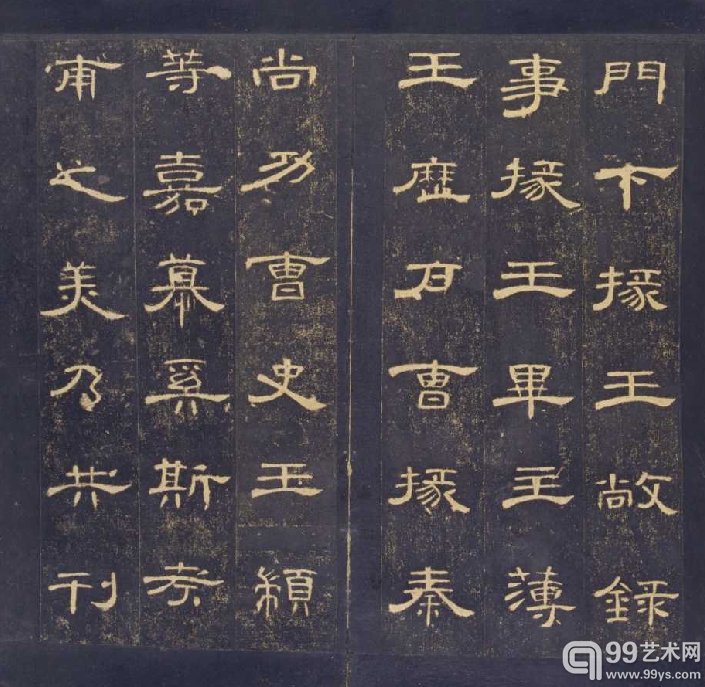 門下掾王敞録
事掾王畢主薄
王歷戶曹掾秦
尚功曹史王顓
等嘉慕奚斯考
甫之美乃共刊
99艺术网
www.99ys.com